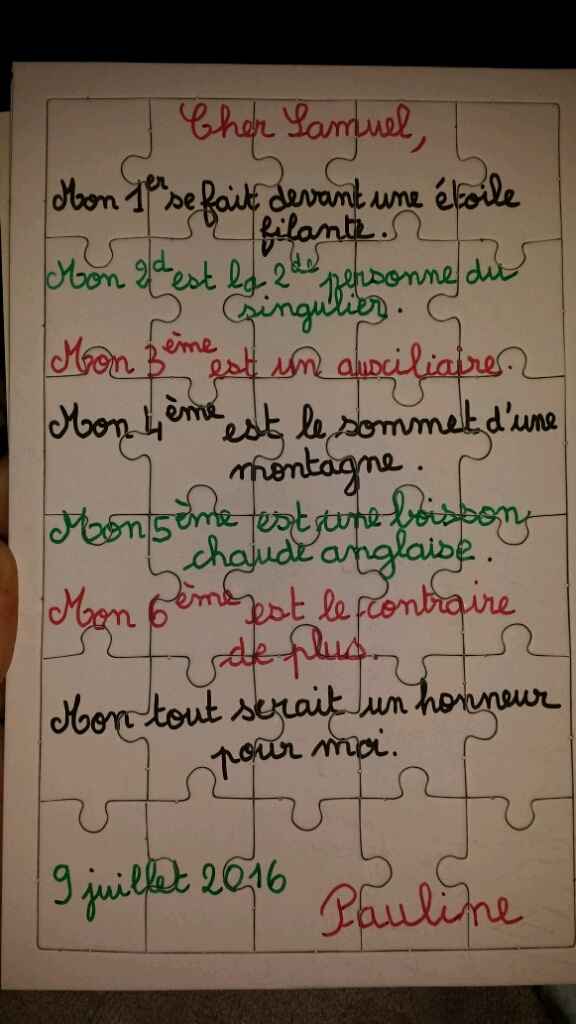 Cher Samuel,
Mon 1er se fait devant une étoile
filante.
Mon 2d est la 2de personne du
singulier.
Mon 3ème est un auxiliaire.
Mon 4ème est le sommet d'une
montagne.
Mon 5ème est une boisson
chaude anglaise.
Mon 6ème est le contraire
de plus.
Mon tout serait un honneur
pour moi.
9 juillet 2016
Pauline